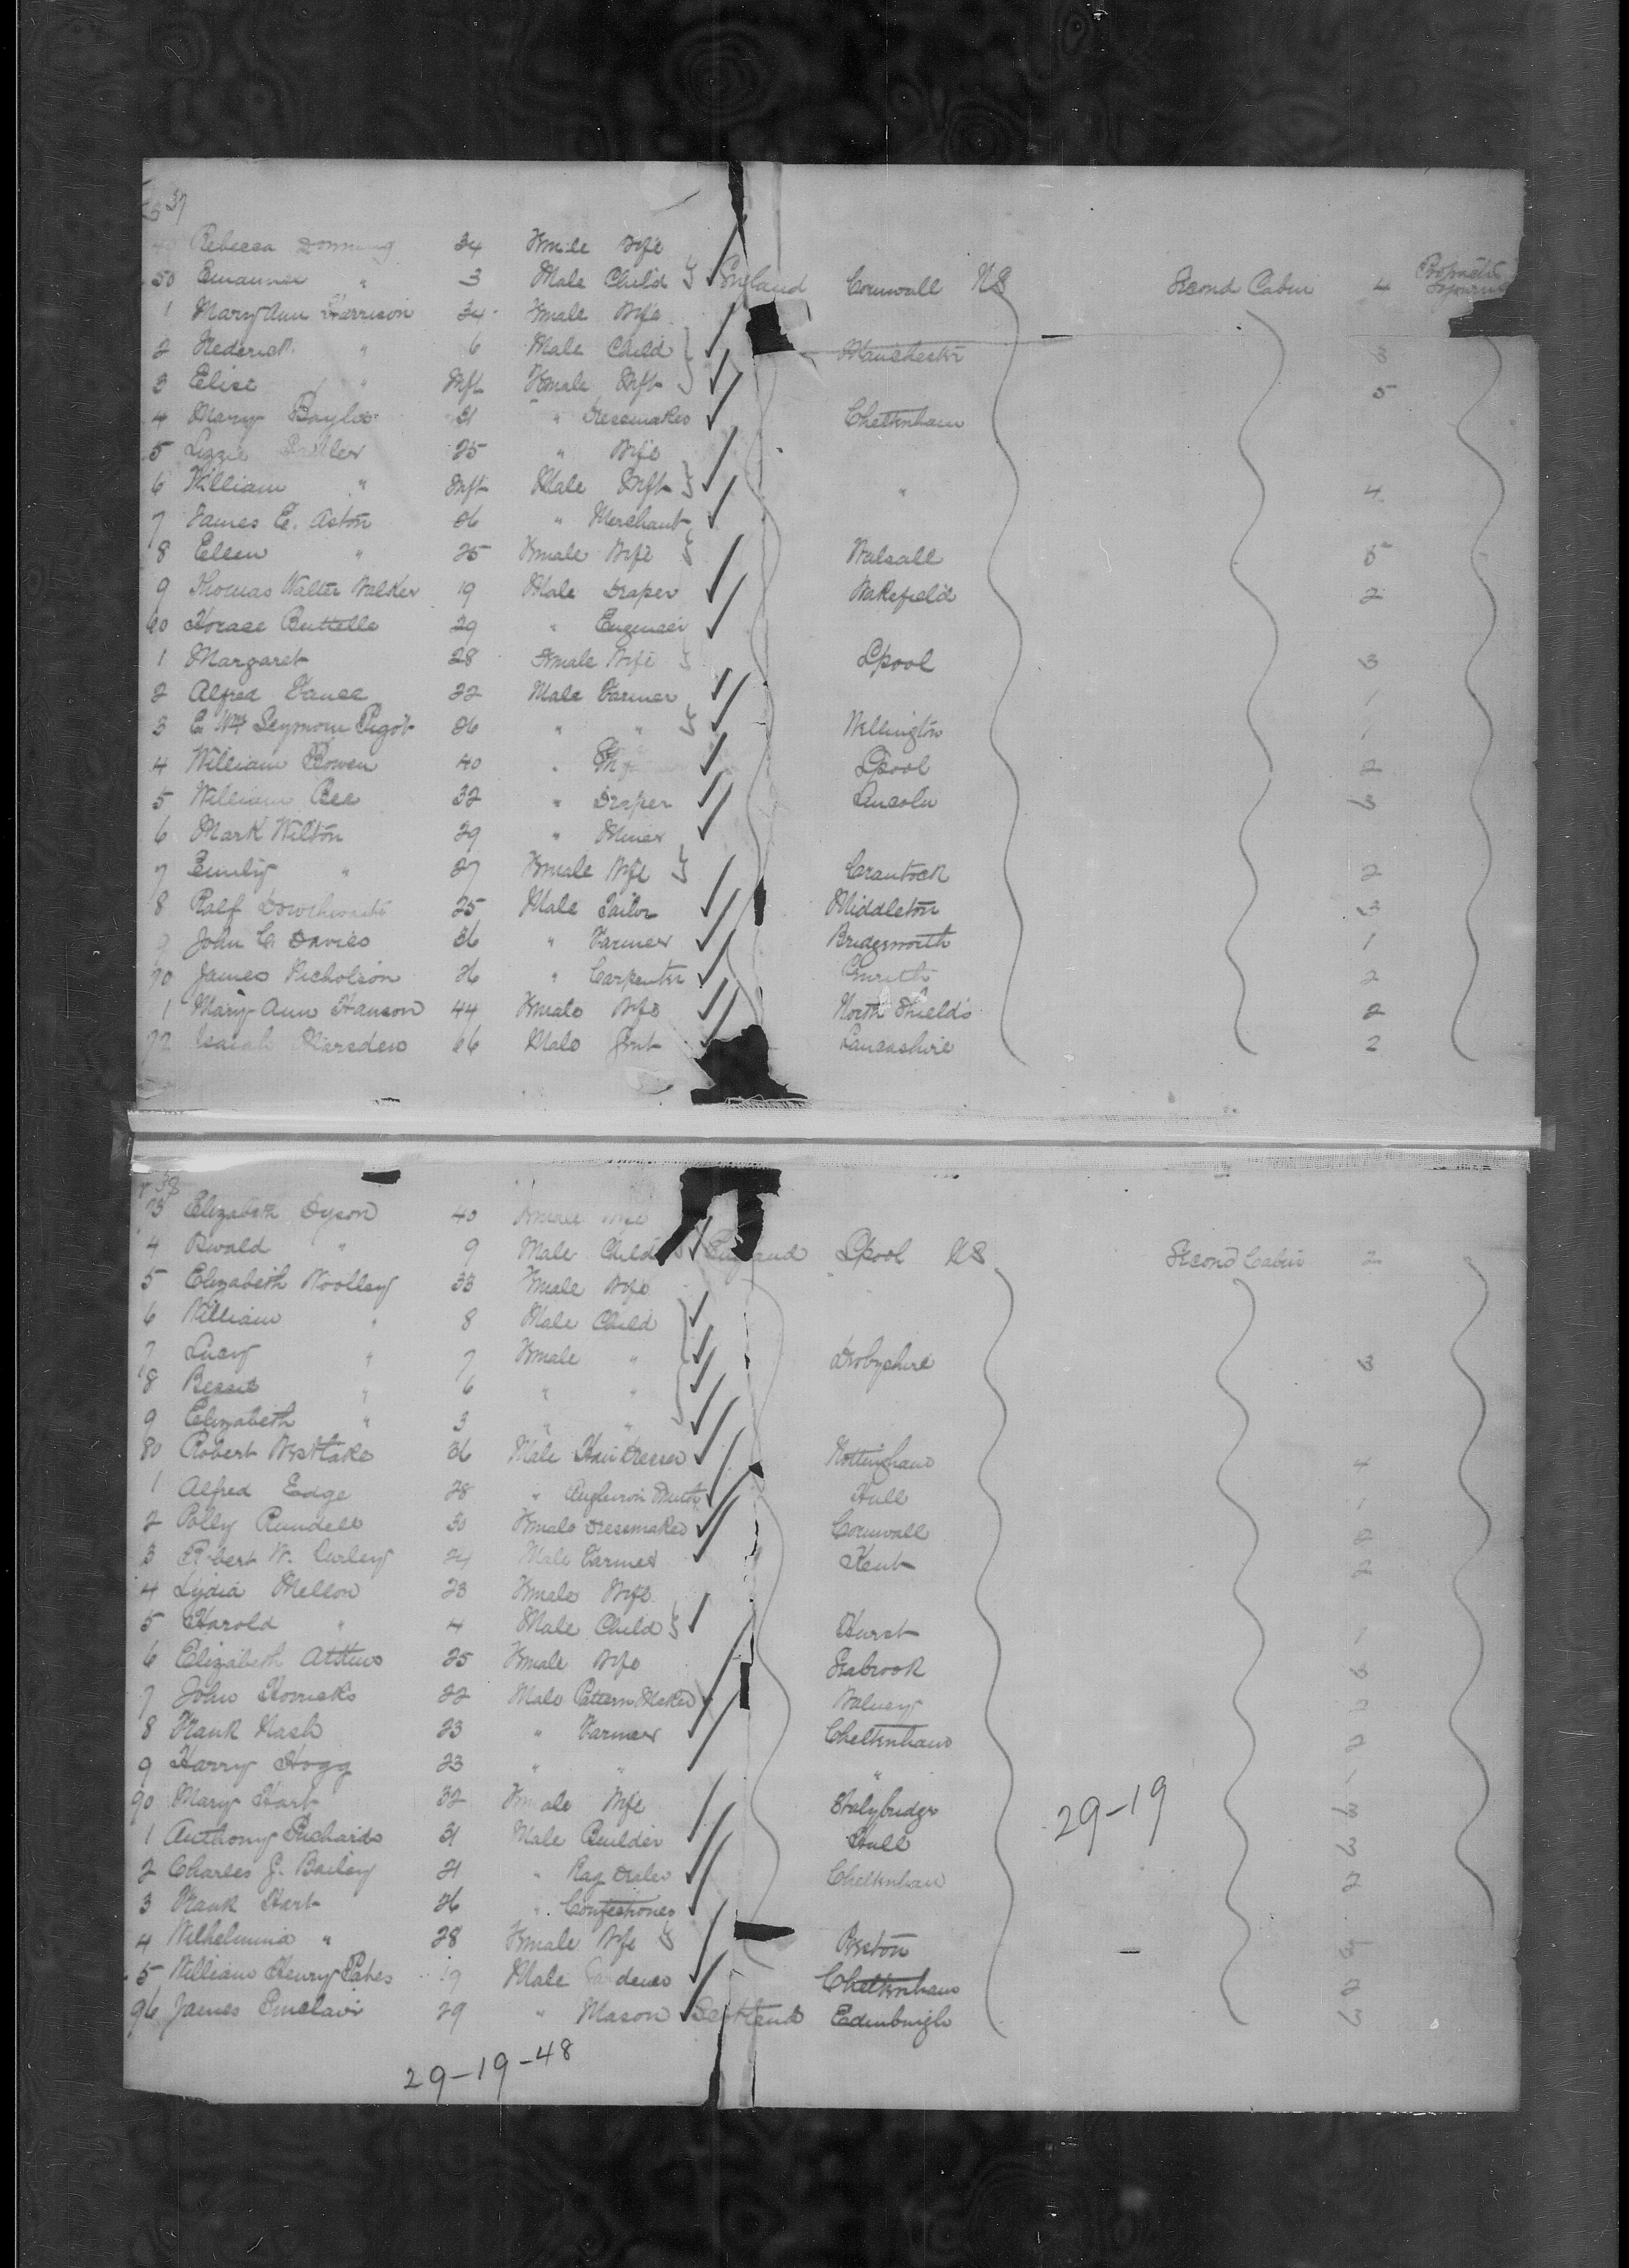 37
Rebecca Downing 34 Female Wife
50 " 3 Male Child England Cornwall US Second Cabin 4
1 Mary Ann Harrison 34 Female Wife
2 Frederick " 6 Male Child Manchester 3
3 Elise " Inft Female Inft 5
4 Mary Baylis " Dressmaker Cheltenham
5 Lizzie 25 " Wife
6 William " Inft Male Inft " 4
7 James E. Aston 36 " Merchant
8 Ellen " 25 Female Wife Walsall 5
9 Thomas Walter Walker 19 Male Draper Wakefield 2
60 Horace Buttelle 29 " Engineer
1 Margaret 28 Female Wife Lpool 3
2 Alfred Vance 22 Male Farmer 1
3 E Wm Seymour Pigot 36 " " Wellington 1
4 William Bowen 40 " Lpool 2
5 William Bee 32 " Draper Lincoln 3
6 Mark Wilton 29 " Miner
7 Emily " 27 Female Wife Crantock 2
8 Ralf 25 Male Tailor Middleton 3
9 John C. Davies 36 " Farmer Bridgnorth 1
70 James Nicholson 26 " Carpenter Penrith 2
1 Mary Ann Hanson 44 Female Wife North Shields 2
72 Isaiah Marsden 66 Male Gent Lancashire 2
38
73 Elizabeth Dyson 40 Female Wife
4 " 9 Male Child England Lpool US Second Cabin 2
5 Elizabeth Woolley 33 Female Wife
6 William " 8 Male Child
7 Lucy " 7 Female " Derbyshire 3
8 Bessie " 6 " "
9 Elizabeth " 3 " "
80 Robert Westlake 36 Male Hair Dresser Nottingham 4
1 Alfred Edge 28 " Hull 1
2 Polly Rundell 30 Female Dressmaker Cornwall 2
3 Robert W. Curley 24 Male Farmer Kent 2
4 Lydia Mellor 23 Female Wife
5 Harold " 4 Male Child Hurst 1
6 Elizabeth 25 Female Wife Seabrook 3
7 John 22 Male Pattern Maker 3
8 Frank Nash 23 " Farmer Cheltenham 2
9 Harry Hogg 23 " " "
90 Mary Hart 32 Female Wife Stalybridge 3
29-19
1 Anthony Richards 31 Male Builder Hull 3
2 Charles J. Bailey 21 " Rag Dealer Cheltenham 2
3 Frank Hart 26 " Confectioner
4 Wilhelmina " 28 Female Wife Preston 3
5 William Henry 19 Male Gardener Cheltenham 2
96 James Sinclair 29 " Mason Scotland Edinburgh 3
29-19-48